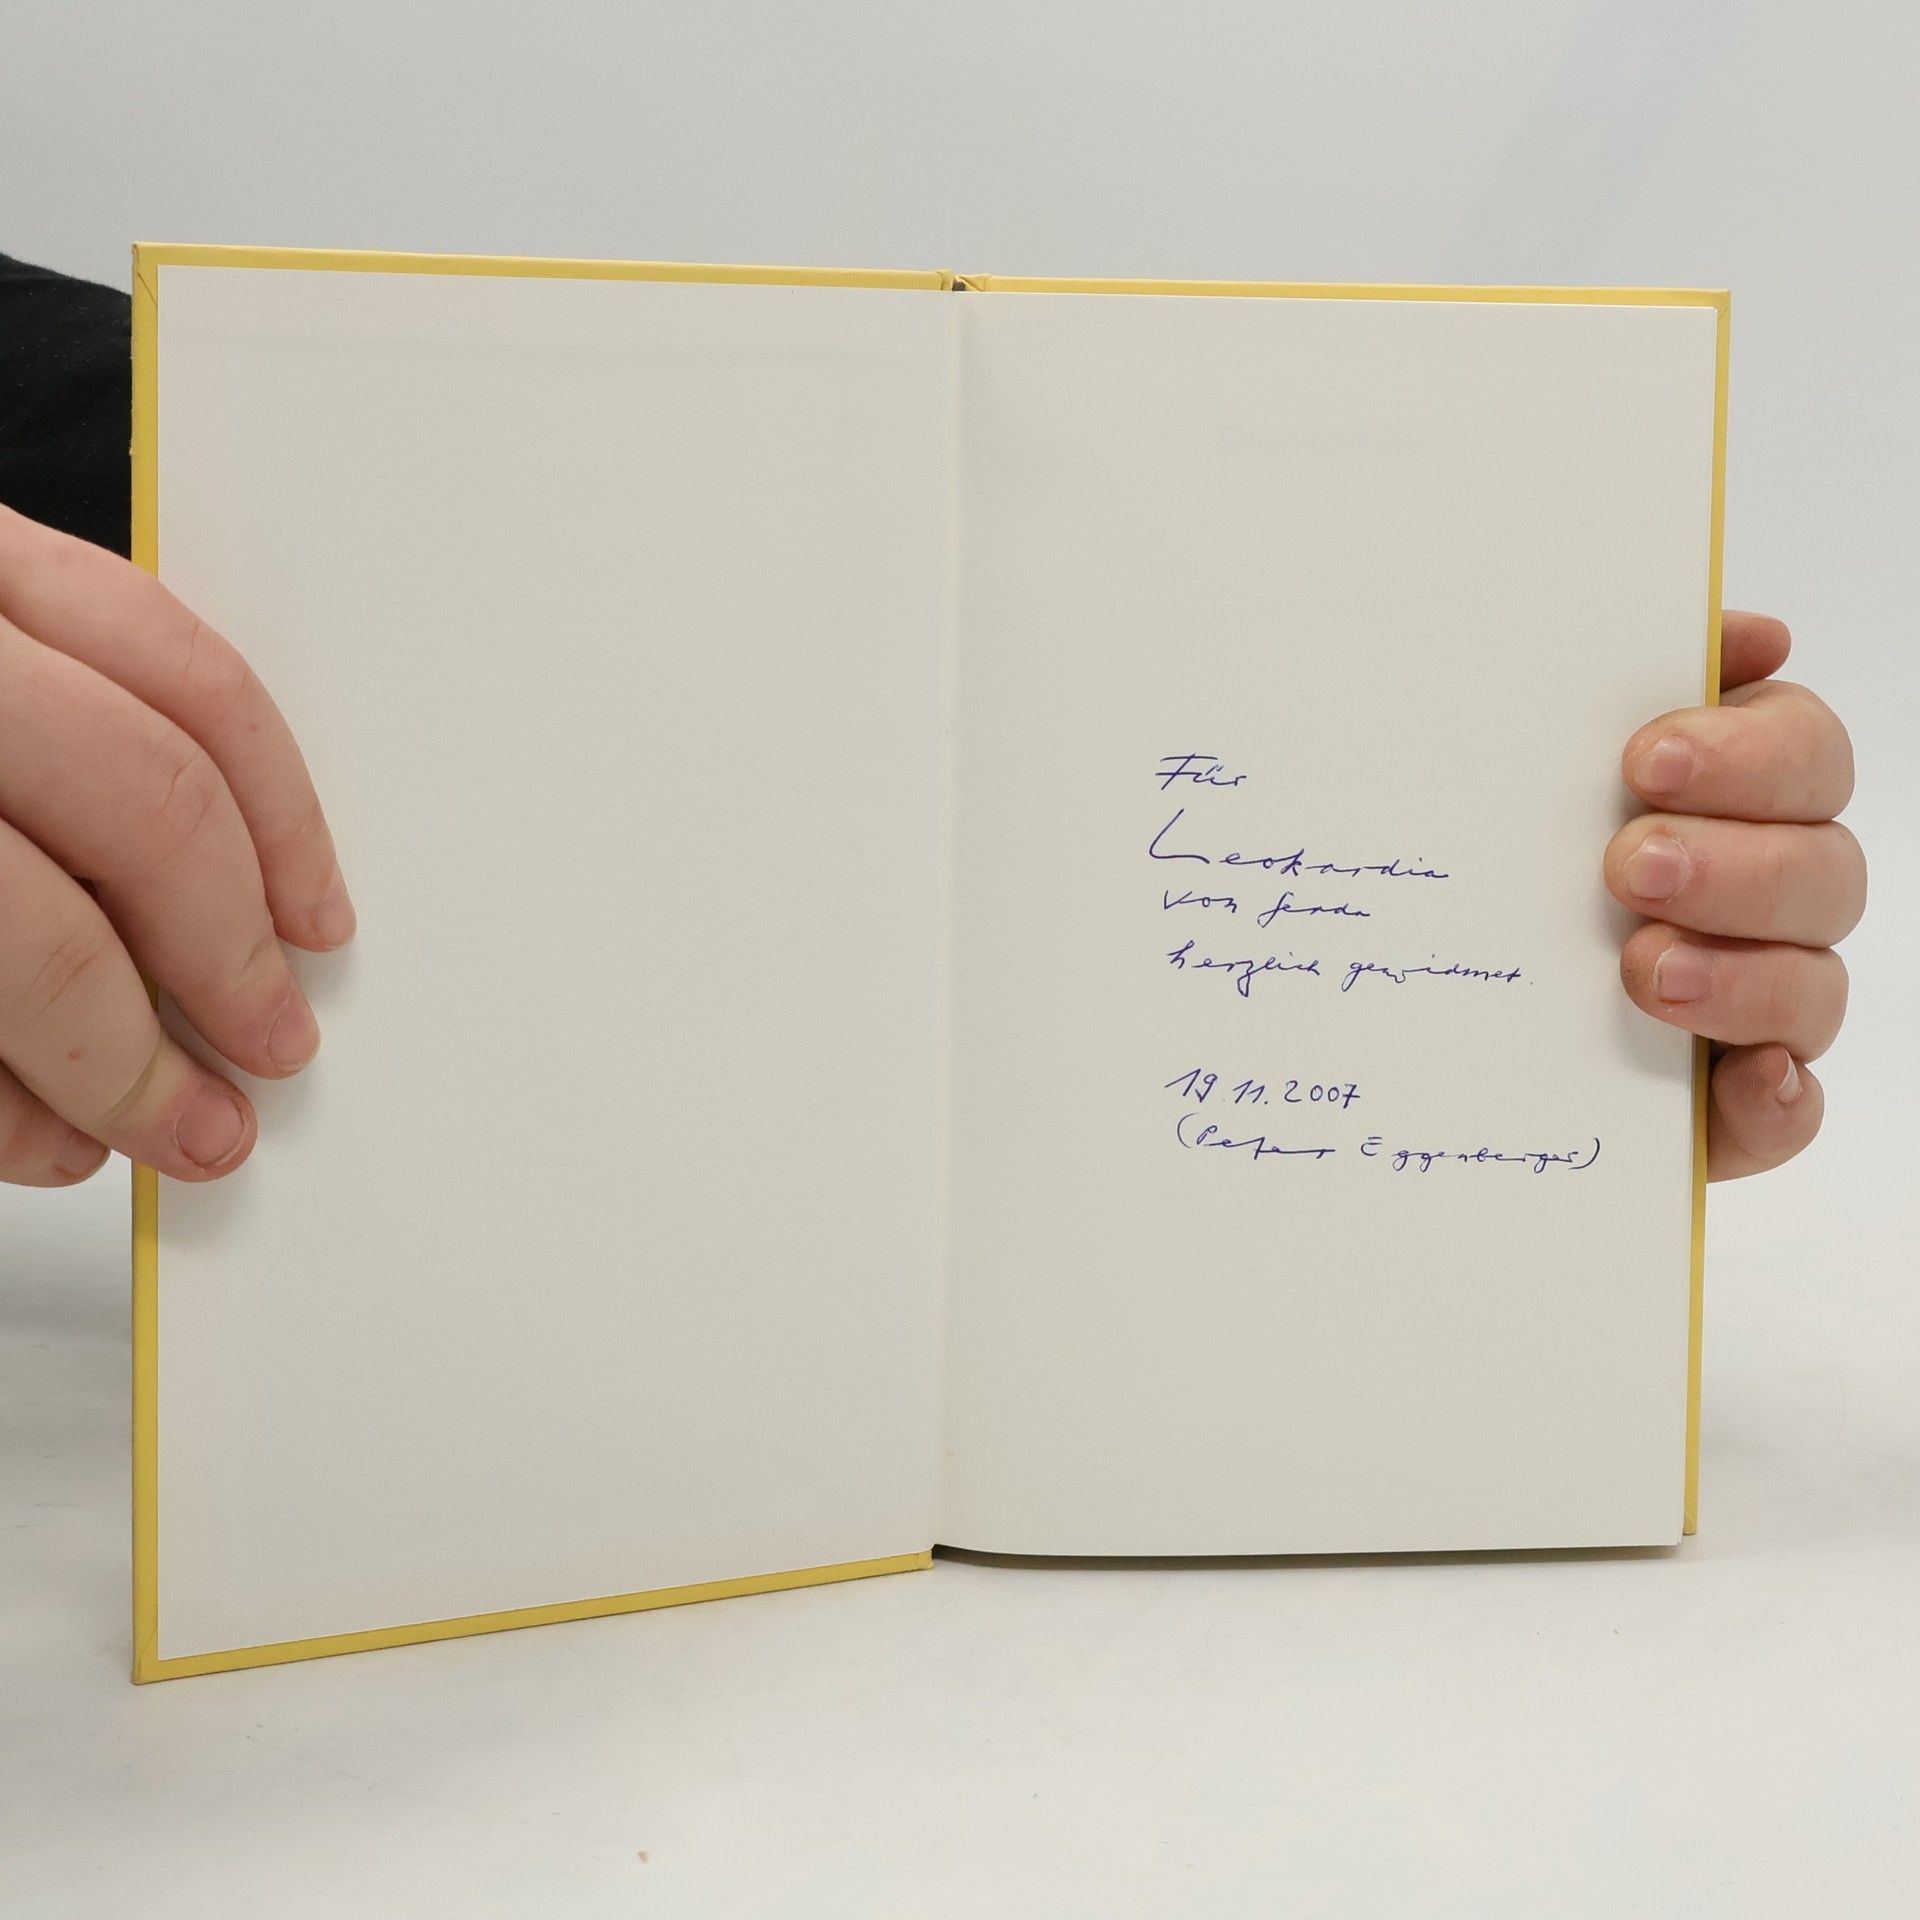 Für
Leokardia
von Gerda
herzlich gewidmet.
19.11.2007
(Peter Eggenberger)